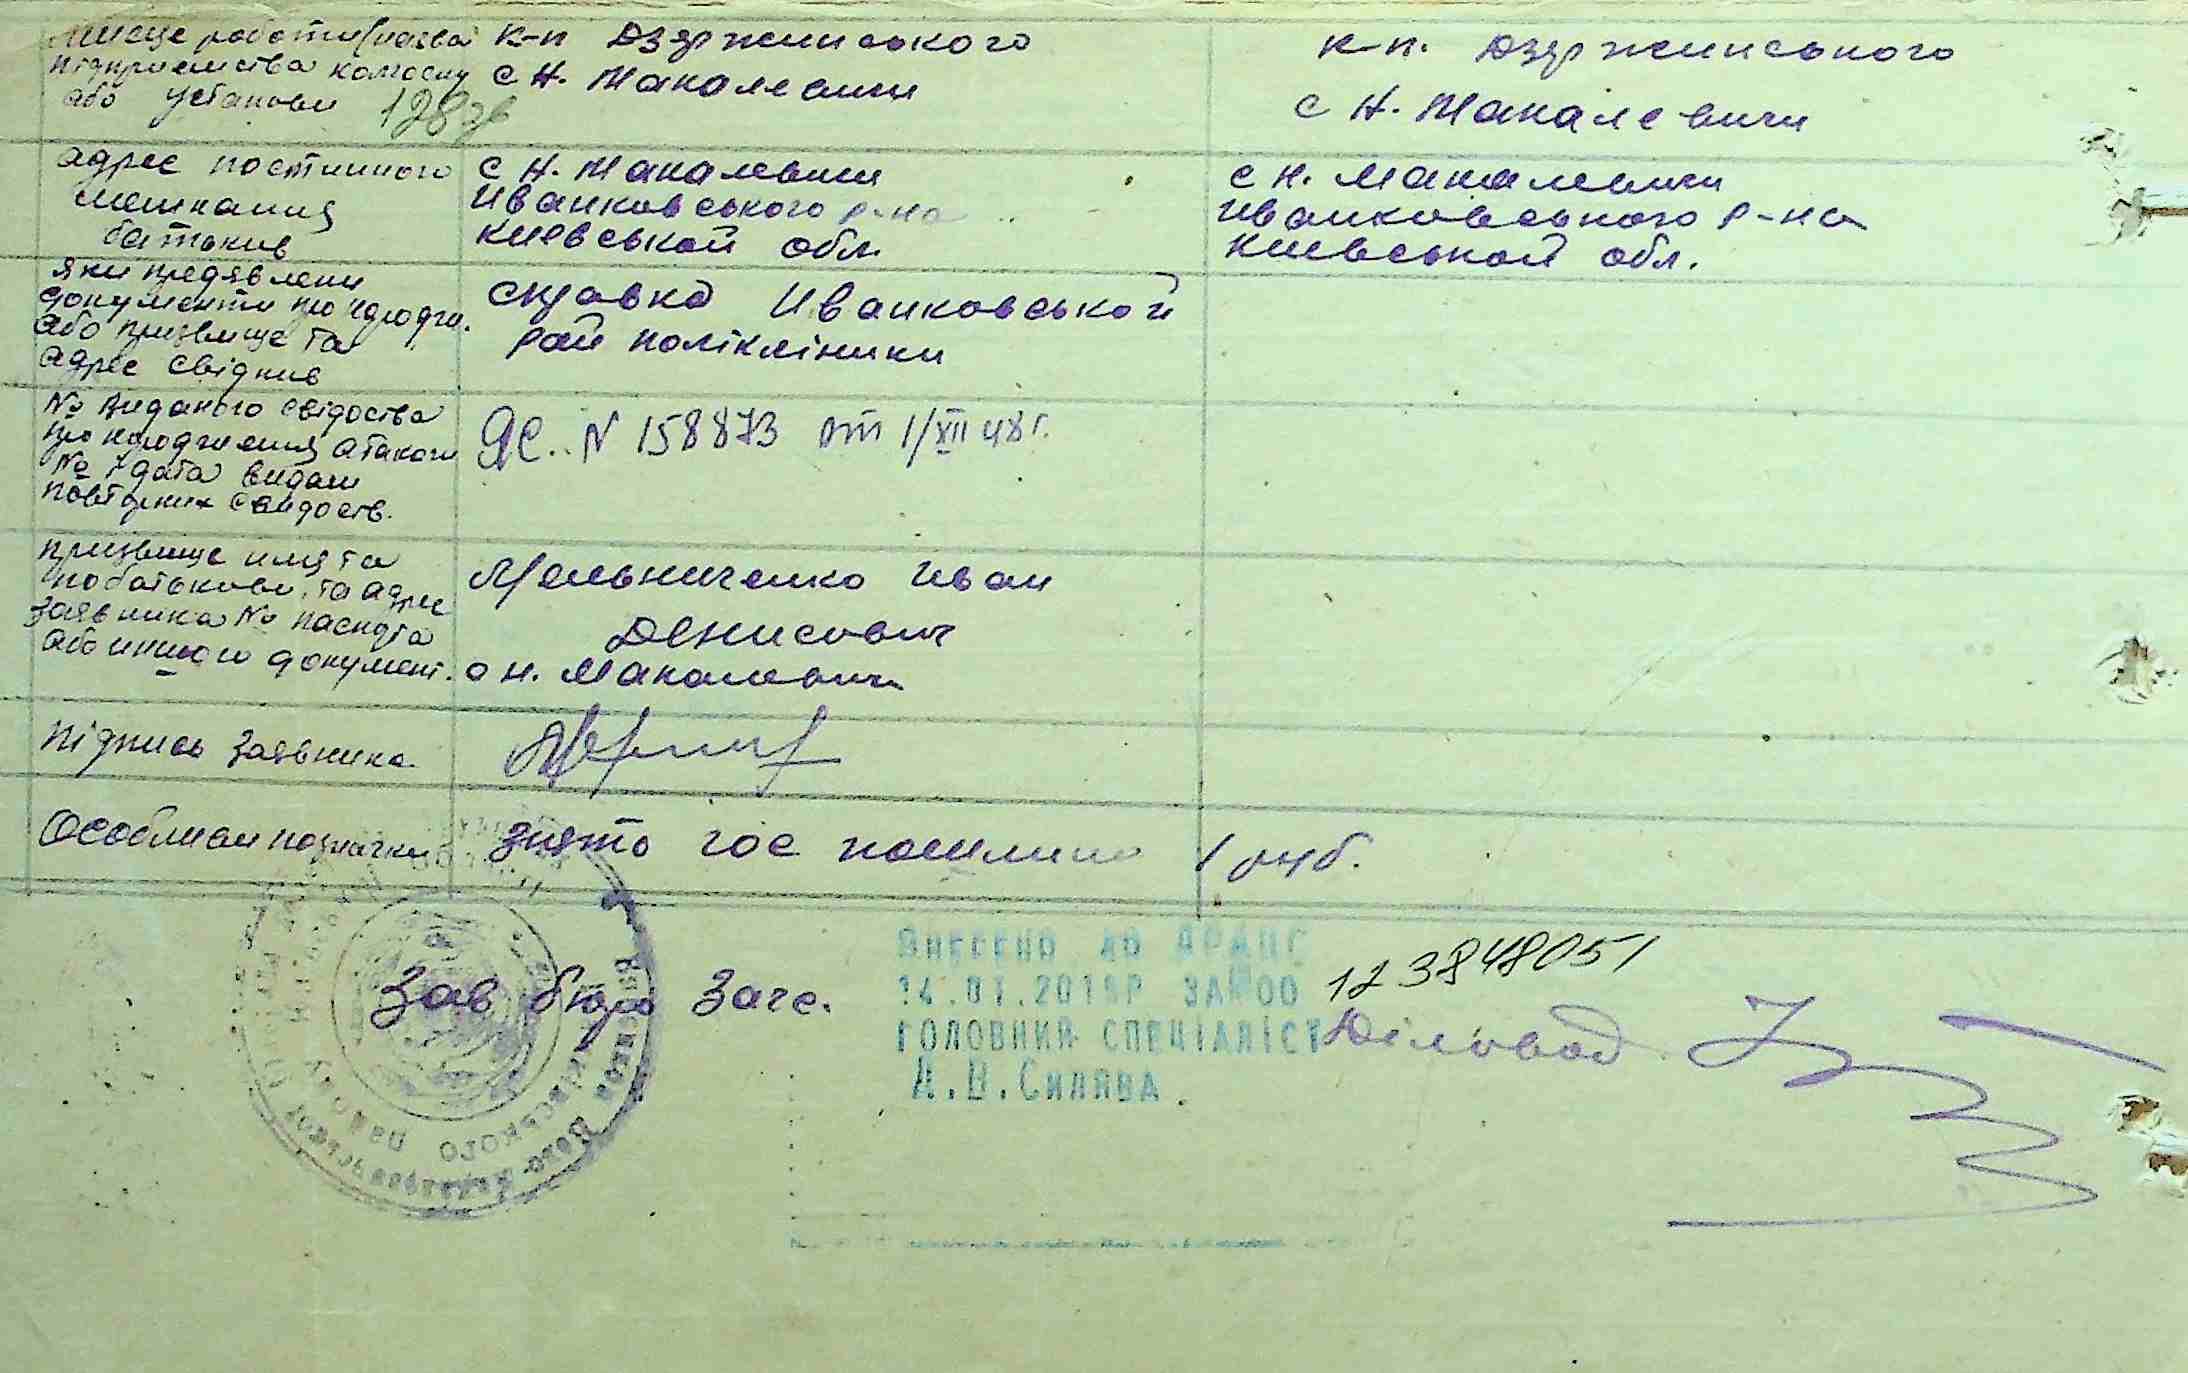 Мисце работи (назва
підприемства колгоспу
або установи
к-п Дзержинського
с Н. Макалевичи
к-п. Дзержинського
с Н. Макалевичи
128 зв
адрес постинного
мешкания
батькив
с Н. Макалевичи
Иванковського р-на
Киевськой обл.
с Н. Макалевичи
Иванковського р-на
Киевськой обл.
яки предявлени
документи про народжн.
або призвище та
адрес свідкив
справка Иванковськой
рай поліклініки
№ виданого свідоства
про народжения атакож
№ дата видачи
повторних свидоств.
ЯС. N 158873 от 1/XII 48 г.
призвище имя та
побатькови, та адрес
заявника № паспорта
або иншого документ.
Мельниченко Иван
Денисович
с Н. Макалевичи
підпись заявника
Особливи позначки
знято гос пошлини 1 руб.
Зав бюро Загс.
Внесено до ДРАЦС
14.01.201 Р ЗА № 00
12384 8051
ГОЛОВНИЙ СПЕЦІАЛІСТ
Діловод